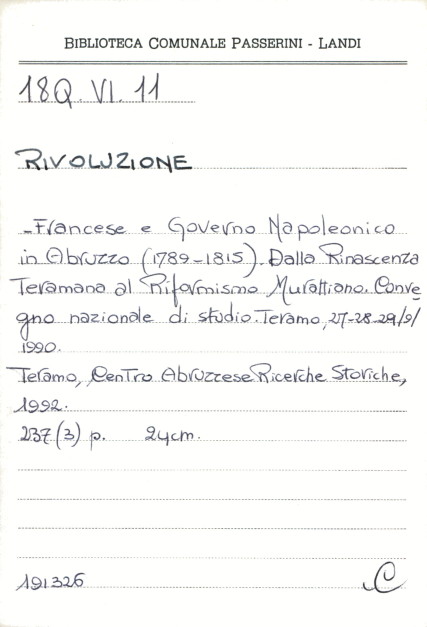 BIBLIOTECA COMUNALE PASSERINI - LANDI
18Q.VI.11
RIVOLUZIONE
-Francese e Governo Napoleonico
in Abruzzo (1789-1815). Dalla Rinascenza
Teramana al Riformismo Murattiano. Conve
gno nazionale di studio. Teramo, 27-28-29/9/
1990.
Teramo, Centro Abruzzese Ricerche Storiche,
1992.
237(3) p. 24cm.
191326 C